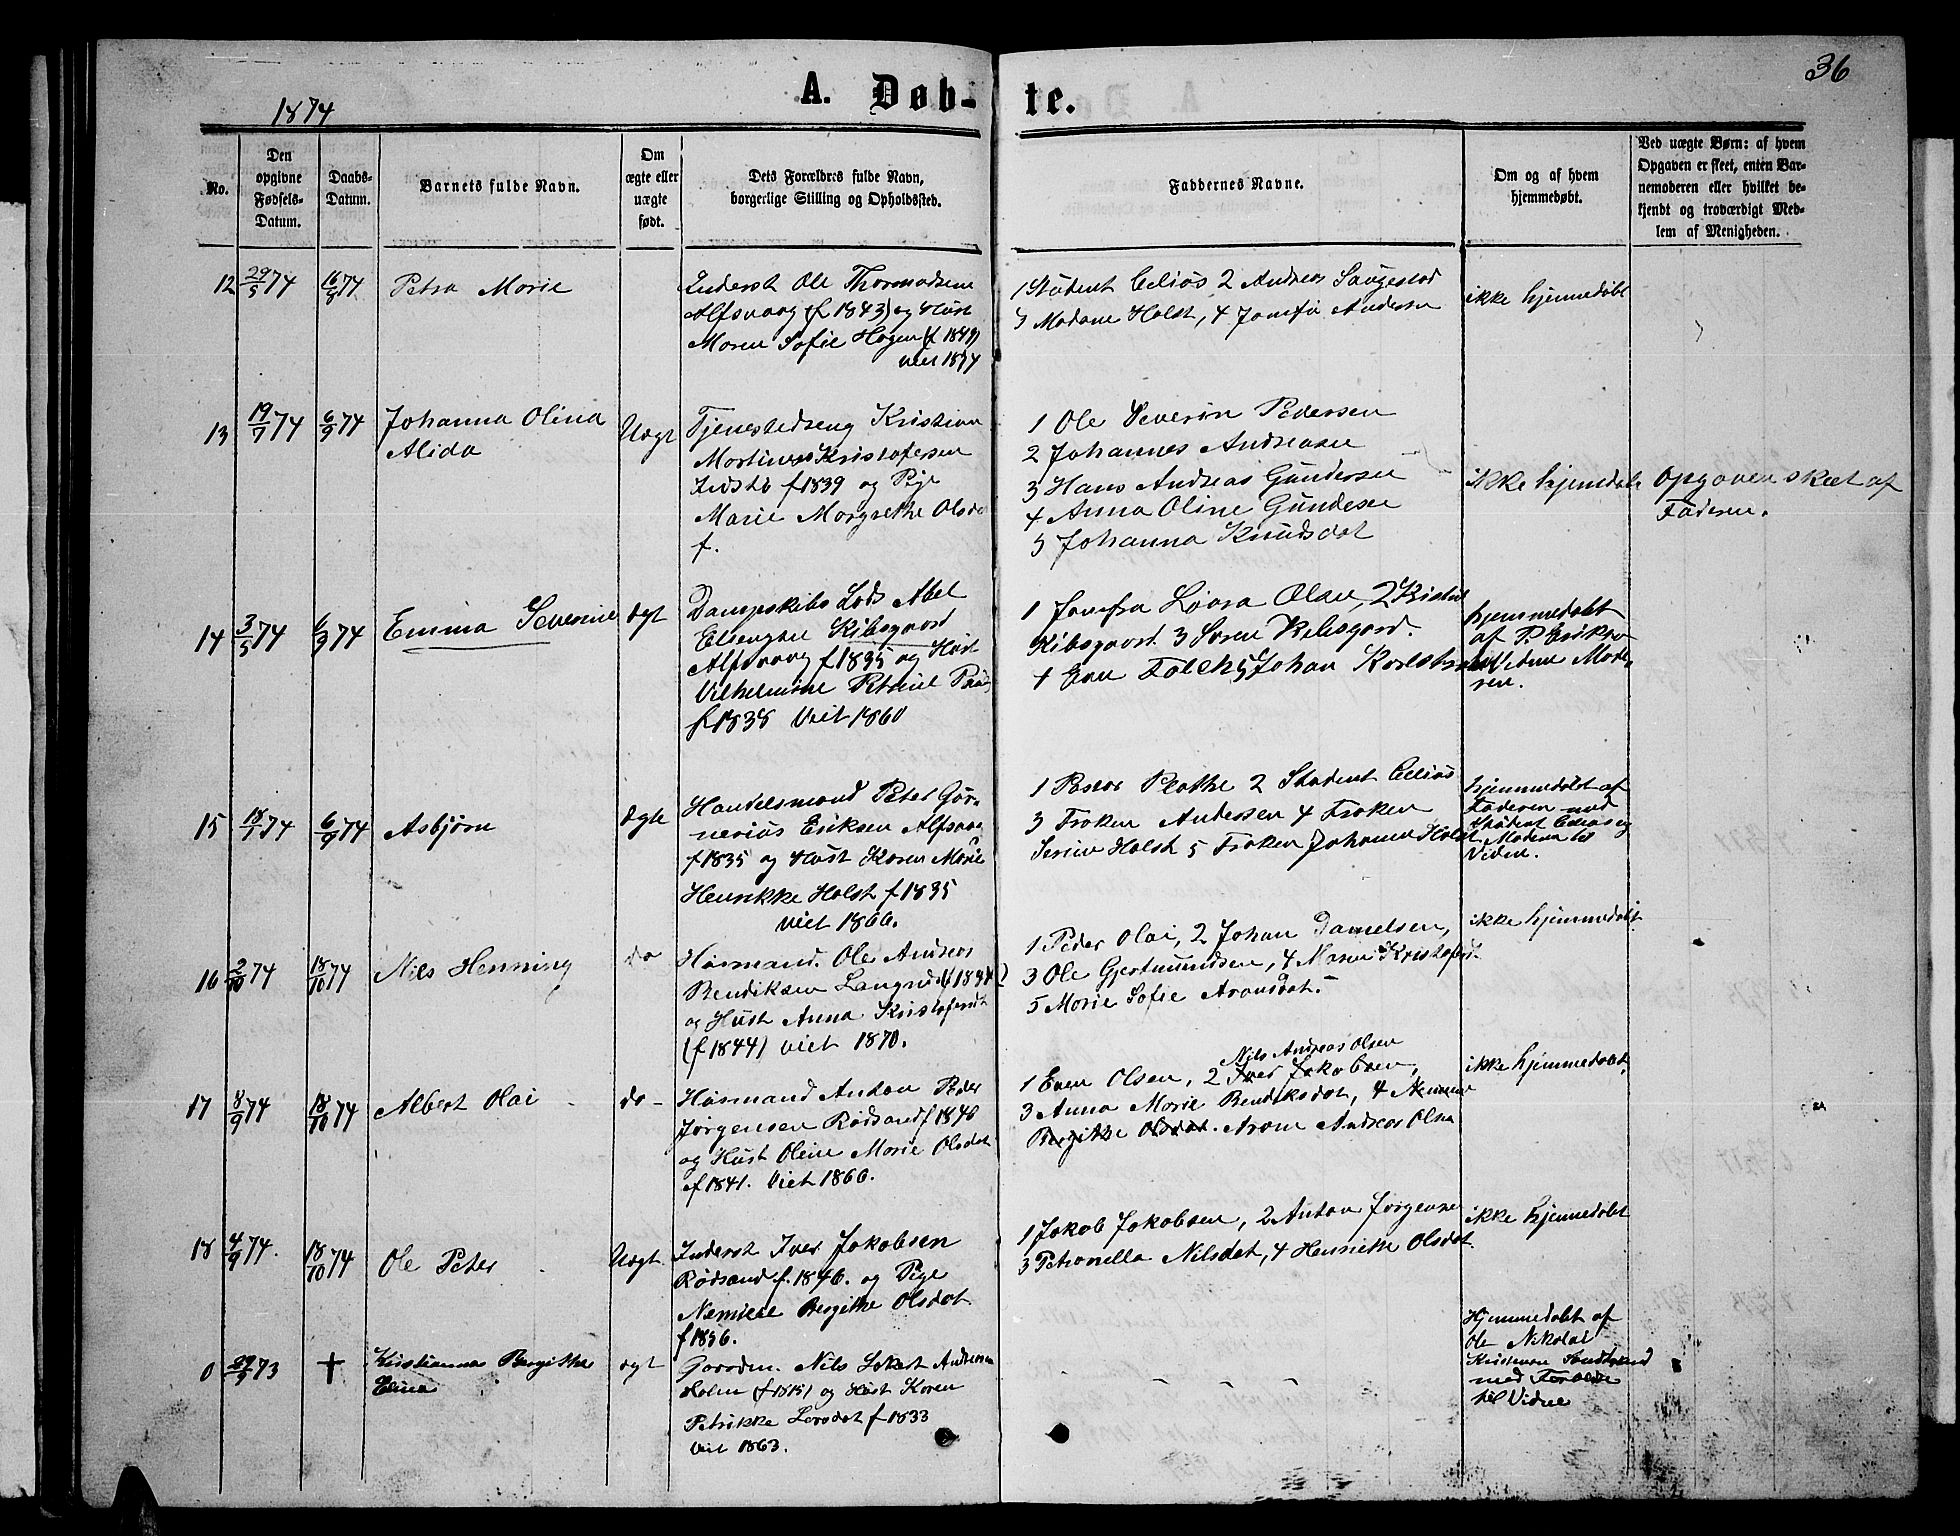 1874
A. Døb- te.
36
No.
Den opgivne Fødsels-Datum.
Daabs-Datum.
Barnets fulde Navn.
Om ægte eller uægte født.
Dets Forældres fulde Navn, borgerlige Stilling og Opholdssted.
Faddernes Navne.
Om og af hvem hjemmedøbt.
Ved uægte Børn: af hvem Opgaven er skeet, enten Barnemoderen eller hvilket bekjendt og troværdigt Medlem af Menigheden.
12 29/5 74 16/8 74 Petra Marie
Inderst Ole Thormodsen
Alfsvaag (f 1843) og Hust
Maren Sofie Hagen (f 1849)
viet 1874
1 Student Celius 2 Andreas Saugestad
3 Madame Holst, 4 Jomfru Andersen
ikke hjemmedøbt
13 19/7 74 6/9 74 Johanna Olina
Alida
Uægt
Tjenestedreng Kristian
Martinus Kristofersen
f 1839 og Pige
Marie Margrethe Olsda
f.
1 Ole Severin Pedersen
2 Johannes Andreasen
3 Hans Andreas Gundersen
4 Anna Oline Gundersen
5 Johanna Knudsdat
ikke hjemedøbt
Opgaven skeet af
Faderen.
14 3/5 74 6/9 74 Emma Severine
ægt
Dampskibs Lods Abel
Kibsgaard
Alfsvaag f 1835 og Hust
Vilhelmine
f 1838 Viet 1860
1 Jomfru Lovra Olsen, 2
Kibsgaard 3 Søren Kibsgard.
4 Even Falch 5 Johan
hjemmedøbt
af P. Eriksen
Vidne Mad
sen.
15 18/1 74 6/9 74 Asbjørn
ægte
Handelsmand Peter Gør-
nerius Eriksen Alfsvaag
f 1835 og Hust Karen Marie
Henrikke Holst f 1835
viet 1866.
1 Pastor Plathe 2 Student Celius
3 Frøken Andersen 4 Frøken
Holst 5 Frøken Johanna Holst
hjemmedøbt af
Faderen med
Student Celius og
Vidne.
16 2/10 74 18/10 74 Nils Henning
do
Husmand. Ole Andreas
Bendiksen
og Hust Anna Kristofersdt
(f 1844) viet 1870.
1 Peder Olai, 2 Johan Danielsen,
3 Ole Gjertmundsen, 4 Maren Kristofersd.
5 Marie Sofie Aronsdat.
ikke hjemmedøbt
17 8/9 74 18/10 74 Albert Olai
do
Husmand Anton Peder
Jørgensen Rødsand f 1840
og Hust Oline Marie Olsdat
f 1841. Viet 1866.
Nils Andreas Olsen
1 Even Olsen, 2 Iver Jakobsen,
3 Anna Marie Bendiksdat, 4
Bergithe Olsdat. Aron Andreas Olsen
ikke hjemmedøbt.
18 4/9 74. 18/10 74 Ole Peter
Uægt.
Inderst Iver Jakobsen
Rødsand f. 1846. og Pige
Bergithe Olsdat
f 1856.
1 Jakob Jakobsen, 2 Anton Jørgensen
3 Petronella Nilsdat, 4 Henrikke Olsdat.
ikke hjemmedøbt
0 73 † Kristianna Bergithe
Elina
ægt
Gaardm. Nils Andersen
Holm (f 1815) og Hust Karen
Petrikke Larsdat f 1833
viet 1863.
Hjemmedøbt af
Ole Nikolai
Kristensen Sandstrand
med Forældre
til Vidne